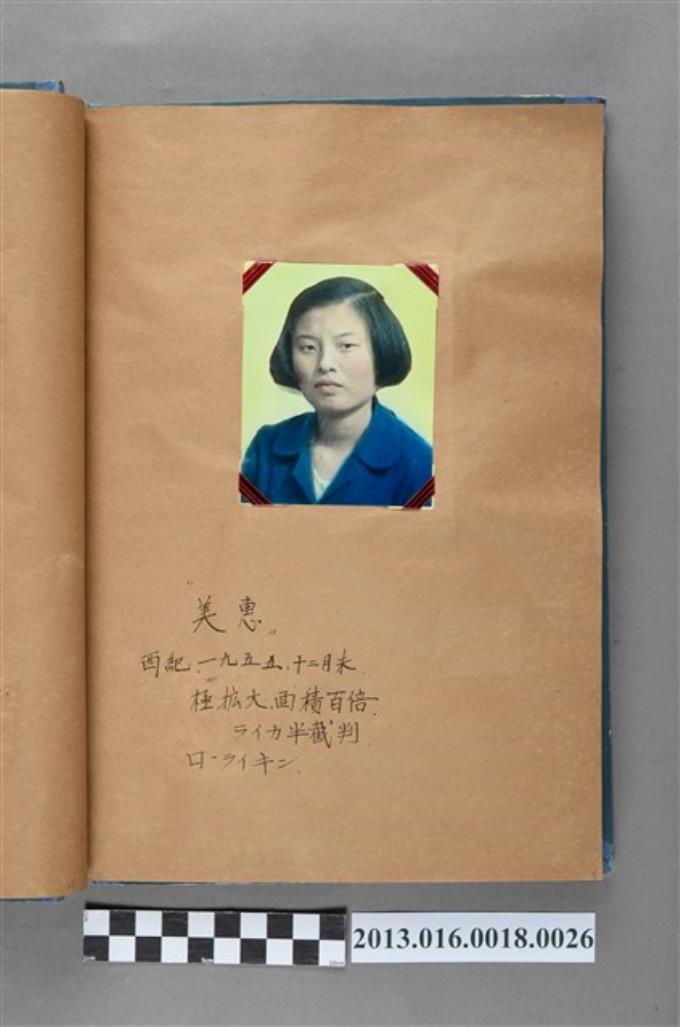 "美惠"
西紀、一九五五、十二月末
極拡大、面積百倍
ライカ半截判
ローライキン
2013.016.0018.0026